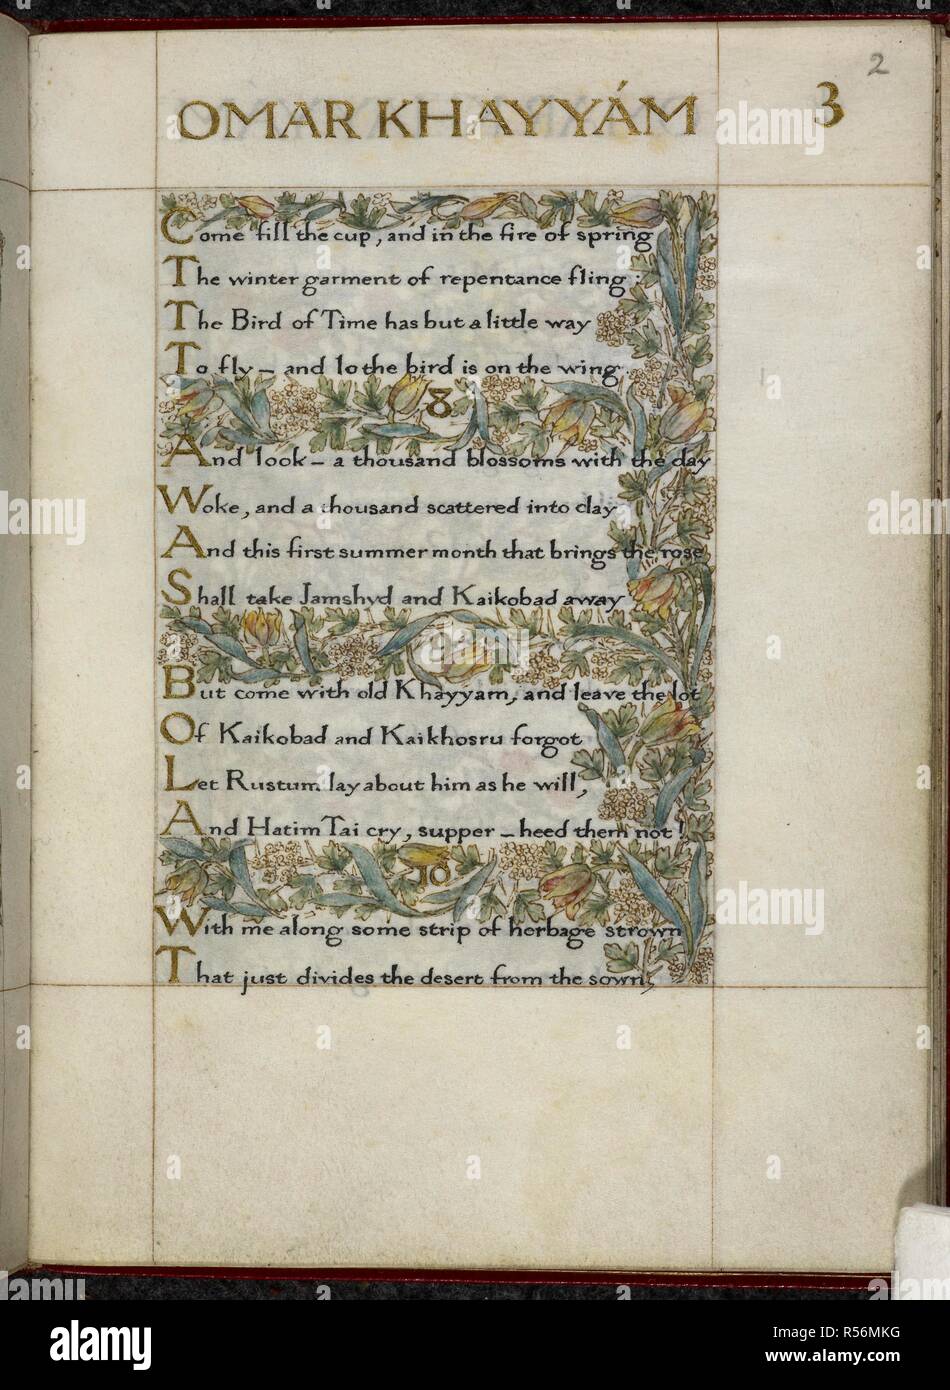 2
OMAR KHAYYÁM 3
Come fill the cup, and in the fire of spring
The winter garment of repentance fling:
The Bird of Time has but a little way
To fly – and lo the bird is on the wing.
8
And look – a thousand blossoms with the day
Woke, and a thousand scattered into clay
And this first summer month that brings the rose
Shall take Jamshyd and Kaikobad away
But come with old Khayyam, and leave the lot
Of Kaikobad and Kaikhosru forgot
Let Rustum lay about him as he will,
And Hatim Tai cry, supper – heed them not!
10
With me along some strip of herbage strown
That just divides the desert from the sown,
alamy
Image ID: R56MKG
www.alamy.com